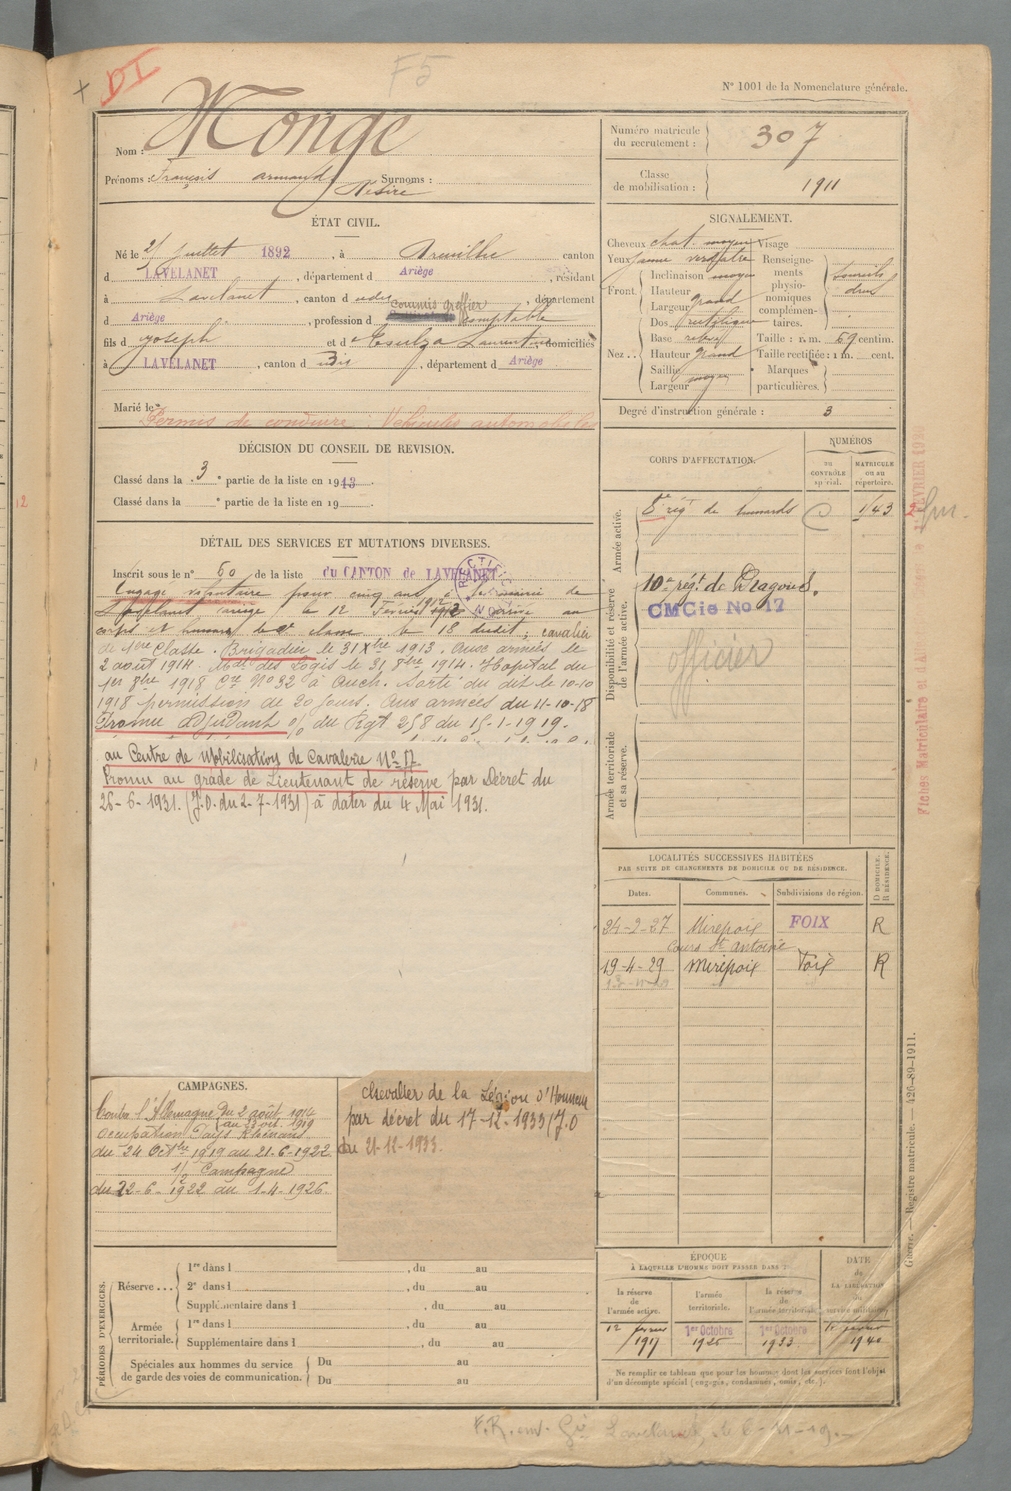 DI
F5
N° 1001 de la Nomenclature générale.
Nom : Monge
Prénoms : François armand Surnoms :
Désiré
ÉTAT CIVIL.
Né le juillet 1892, à Dreuilhe canton
d LAVELANET, département d Ariège, résidant
à Lavelanet, canton d udit, département
commis greffier
d Ariège, profession d comptable
fils d Joseph et d Laurentine domiciliés
à LAVELANET, canton d udit, département d Ariège
Marié le
Permis de conduire Vehicules automobiles
DÉCISION DU CONSEIL DE REVISION.
Classé dans la 3e partie de la liste en 1913.
Classé dans la e partie de la liste en 19
DÉTAIL DES SERVICES ET MUTATIONS DIVERSES.
Inscrit sous le n° 60 de la liste du CANTON de LAVELANET
Engagé volontaire pour cinq ans à la mairie de
le 12 1912 arrivé au
corps et hussard de 2e classe le 18 dudit ; cavalier
de 1ère Classe. Brigadier le 31 Xbre 1913. Aux armées le
2 août 1914. Mdl des Logis le 31 8bre 1914. Hopital du
1er 8bre 1918 N° 32 à Auch. Sorti du dit le 10-10
1918 permission de 20 jours. Aux armées du 11-10-18
Promu adjudant o/ du Rgt 258 du 15-1-1919.
au Centre de Mobilisation de Cavalerie N° 17
Promu au grade de Lieutenant de réserve par Décret du
26-6-1931. (J.O. du 2-7-1931) à dater du 4 Mai 1931.
CAMPAGNES.
Contre l'Allemagne du 2 août 1914
au 23 oct. 1919
Occupation Pays Rhénans
du 24 Octbre 1919 au 21-6-1922
1/2 Campagne
du 22-6-1922 au 1-4-1926.
chevalier de la Légion d'Honneur
par décret du 17-12-1933 (J.O
du 21-12-1933.
PÉRIODES D'EXERCICES.
Réserve...
1re dans l , du au
2e dans l , du au
Supplémentaire dans l , du au
Armée territoriale.
1re dans l , du au
Supplémentaire dans l , du au
Spéciales aux hommes du service
de garde des voies de communication.
Du au
Du au
Numéro matricule
du recrutement : 307
Classe
de mobilisation : 1911
SIGNALEMENT.
Cheveux chat. moyen Visage
Yeux jaune verdâtre
Front.
Inclinaison moyen
Hauteur
Largeur grand
Nez..
Dos rectiligne
Base
Hauteur grand
Saillie
Largeur moyen
Renseignements physionomiques complémentaires.
sourcils
drus
Taille : 1 m. 69 centim.
Taille rectifiée : 1 m. cent.
Marques
particulières.
Degré d'instruction générale : 3
CORPS D'AFFECTATION.
NUMÉROS
DU CONTRÔLE spécial.
MATRICULE ou au répertoire.
Armée active.
8e régt de hussards
1143
Disponibilité et réserve
de l'armée active.
10e régt. de Dragons.
CMCie No 17
officier
Armée territoriale
et sa réserve.
LOCALITÉS SUCCESSIVES HABITÉES
PAR SUITE DE CHANGEMENTS DE DOMICILE OU DE RÉSIDENCE.
Dates. Communes. Subdivisions de région. D DOMICILE. R RÉSIDENCE.
24-2-27 Mirepoix FOIX R
Cours St Antoine
19-4-29 Mirepoix Foix R
ÉPOQUE
À LAQUELLE L'HOMME DOIT PASSER DANS :
la réserve de l'armée active.
l'armée territoriale.
la réserve de l'armée territoriale.
DATE de LA LIBÉRATION du service militaire.
12 fevrier 1917
1er Octobre 1926
1er Octobre 1933
1940
Ne remplir ce tableau que pour les hommes dont les services font l'objet
d'un décompte spécial (engagés, condamnés, omis, etc.).
Guerre. — Registre matricule. — 426-89-1911.
12